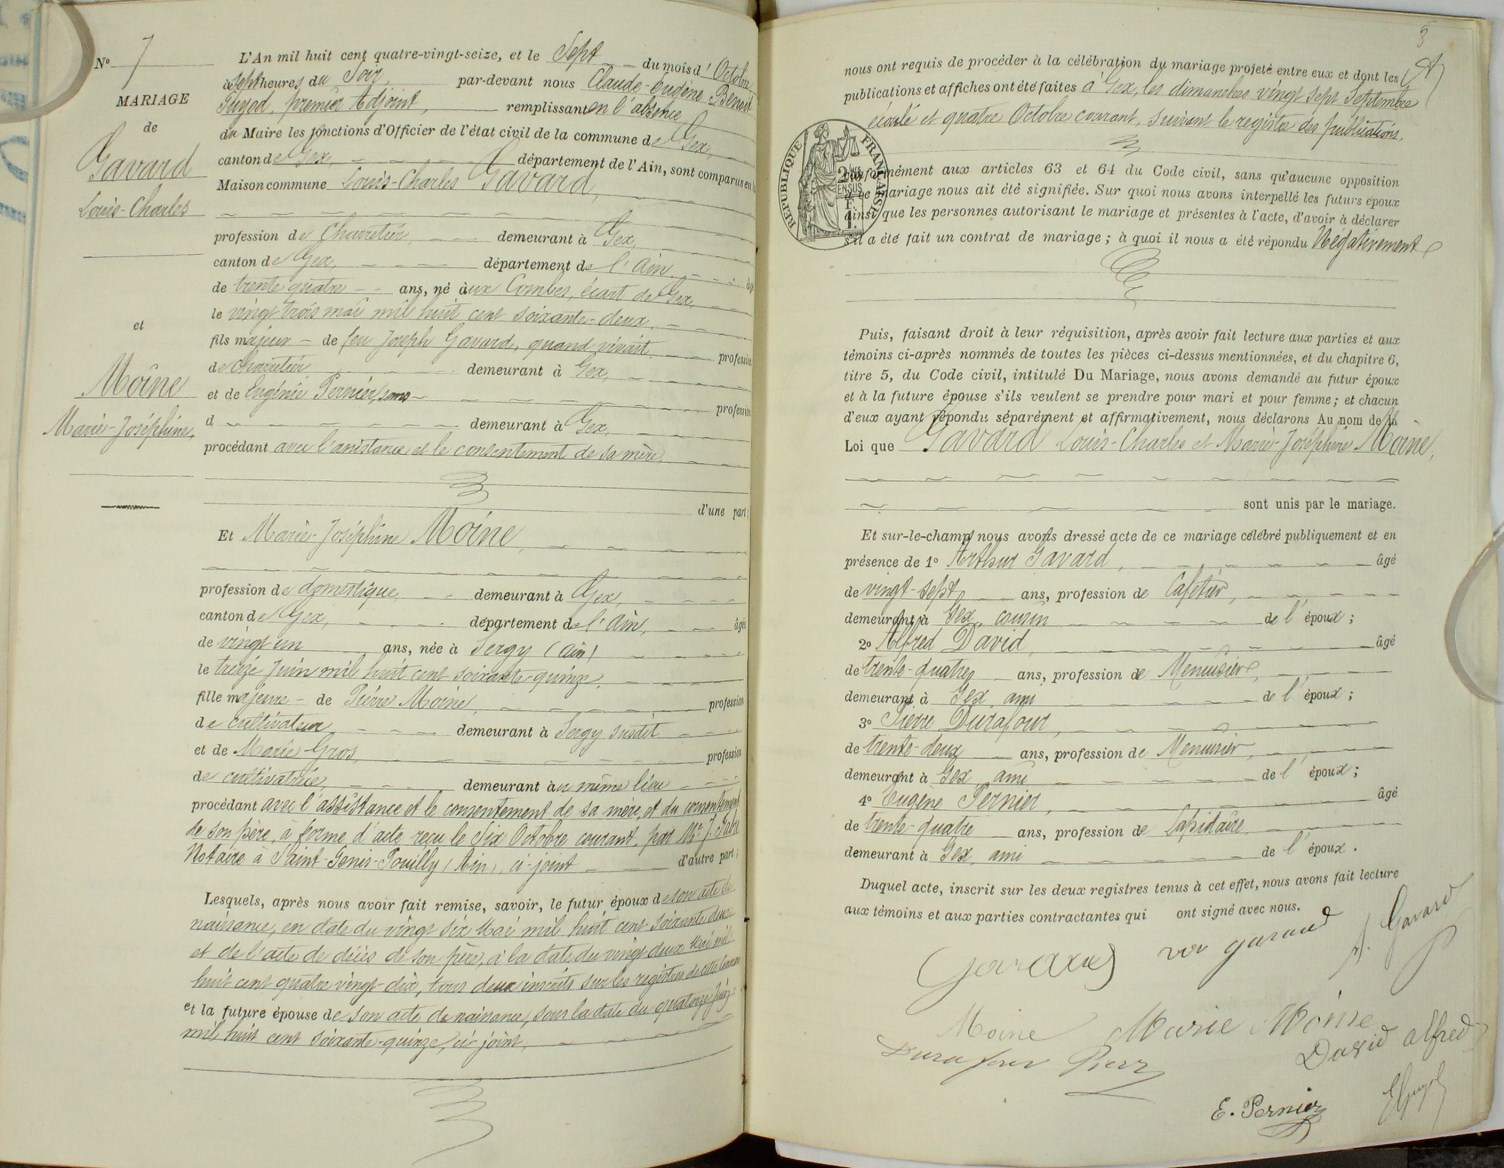 N° 7
MARIAGE
de
Gavard
Louis-Charles
et
Moine
Marie-Joséphine.
L'An mil huit cent quatre-vingt-seize, et le Sept du mois d'Octobre
à sept heures du Soir, par-devant nous Claude-Eugène-Benoit
premier Adjoint, remplissant en l'absence
du Maire les fonctions d'Officier de l'état civil de la commune de Gex,
canton de Gex, département de l'Ain, sont comparus en la
Maison commune Louis-Charles Gavard,
profession de Charretier demeurant à Gex,
canton de Gex, département de l'Ain, âgé
de trente quatre ans, né aux Combes, écart de Gex,
le vingt trois mai mil huit cent soixante-deux,
fils majeur de feu Joseph Gavard, quand vivait profession
de Charretier demeurant à Gex,
et de Eugénie Pernier, sans profession
d demeurant à Gex,
procédant avec l'assistance et le consentement de sa mère,
d'une part;
Et Marie-Joséphine Moine,
profession de domestique demeurant à Gex,
canton de Gex, département de l'Ain, âgée
de vingt un ans, née à Sergy (Ain)
le treize Juin mil huit cent soixante-quinze,
fille majeure de Pierre Moine, profession
de cultivateur demeurant à Sergy susdit
et de Marie Gros, profession
de cultivatrice, demeurant au même lieu
procédant avec l'assistance et le consentement de sa mère, et du consentement
de son père, à forme d'acte reçu le Six Octobre courant, par Me J. Fabre
Notaire à Saint-Genis-Pouilly (Ain), ci-joint d'autre part;
Lesquels, après nous avoir fait remise, savoir, le futur époux de son acte de
naissance, en date du vingt six Mai mil huit cent soixante deux
et de l'acte de décès de son père, à la date du vingt deux Mai mil
huit cent quatre vingt-dix, tous deux inscrits sur les registres de cette commune
et la future épouse de son acte de naissance, sous la date du quatorze Juin
mil huit cent soixante-quinze, ci joint.
5
nous ont requis de procéder à la célébration du mariage projeté entre eux et dont les
publications et affiches ont été faites à Gex, les dimanches vingt sept Septembre
écoulé et quatre Octobre courant, suivant le registre des publications,
RÉPUBLIQUE FRANÇAISE
conformément aux articles 63 et 64 du Code civil, sans qu'aucune opposition
à ce mariage nous ait été signifiée. Sur quoi nous avons interpellé les futurs époux
ainsi que les personnes autorisant le mariage et présentes à l'acte, d'avoir à déclarer
s'il a été fait un contrat de mariage; à quoi il nous a été répondu Négativement
Puis, faisant droit à leur réquisition, après avoir fait lecture aux parties et aux
témoins ci-après nommés de toutes les pièces ci-dessus mentionnées, et du chapitre 6,
titre 5, du Code civil, intitulé Du Mariage, nous avons demandé au futur époux
et à la future épouse s'ils veulent se prendre pour mari et pour femme; et chacun
d'eux ayant répondu séparément et affirmativement, nous déclarons Au nom de la
Loi que Gavard Louis-Charles et Marie-Joséphine Moine,
sont unis par le mariage.
Et sur-le-champ nous avons dressé acte de ce mariage célébré publiquement et en
présence de 1° Arthur Gavard, âgé
de vingt-sept ans, profession de Cafetier,
demeurant à Gex, cousin de l'époux;
2° Alfred David, âgé
de trente-quatre ans, profession de Menuisier,
demeurant à Gex, ami de l'époux;
3° Pierre Durafour,
de trente-deux ans, profession de Menuisier,
demeurant à Gex, ami de l'époux;
4° Eugène Pernier, âgé
de trente-quatre ans, profession de Lapidaire
demeurant à Gex, ami de l'époux.
Duquel acte, inscrit sur les deux registres tenus à cet effet, nous avons fait lecture
aux témoins et aux parties contractantes qui ont signé avec nous.
Gavard
A. Gavard
Moine Marie Moine
Durafour Pierre
David Alfred
E. Pernier